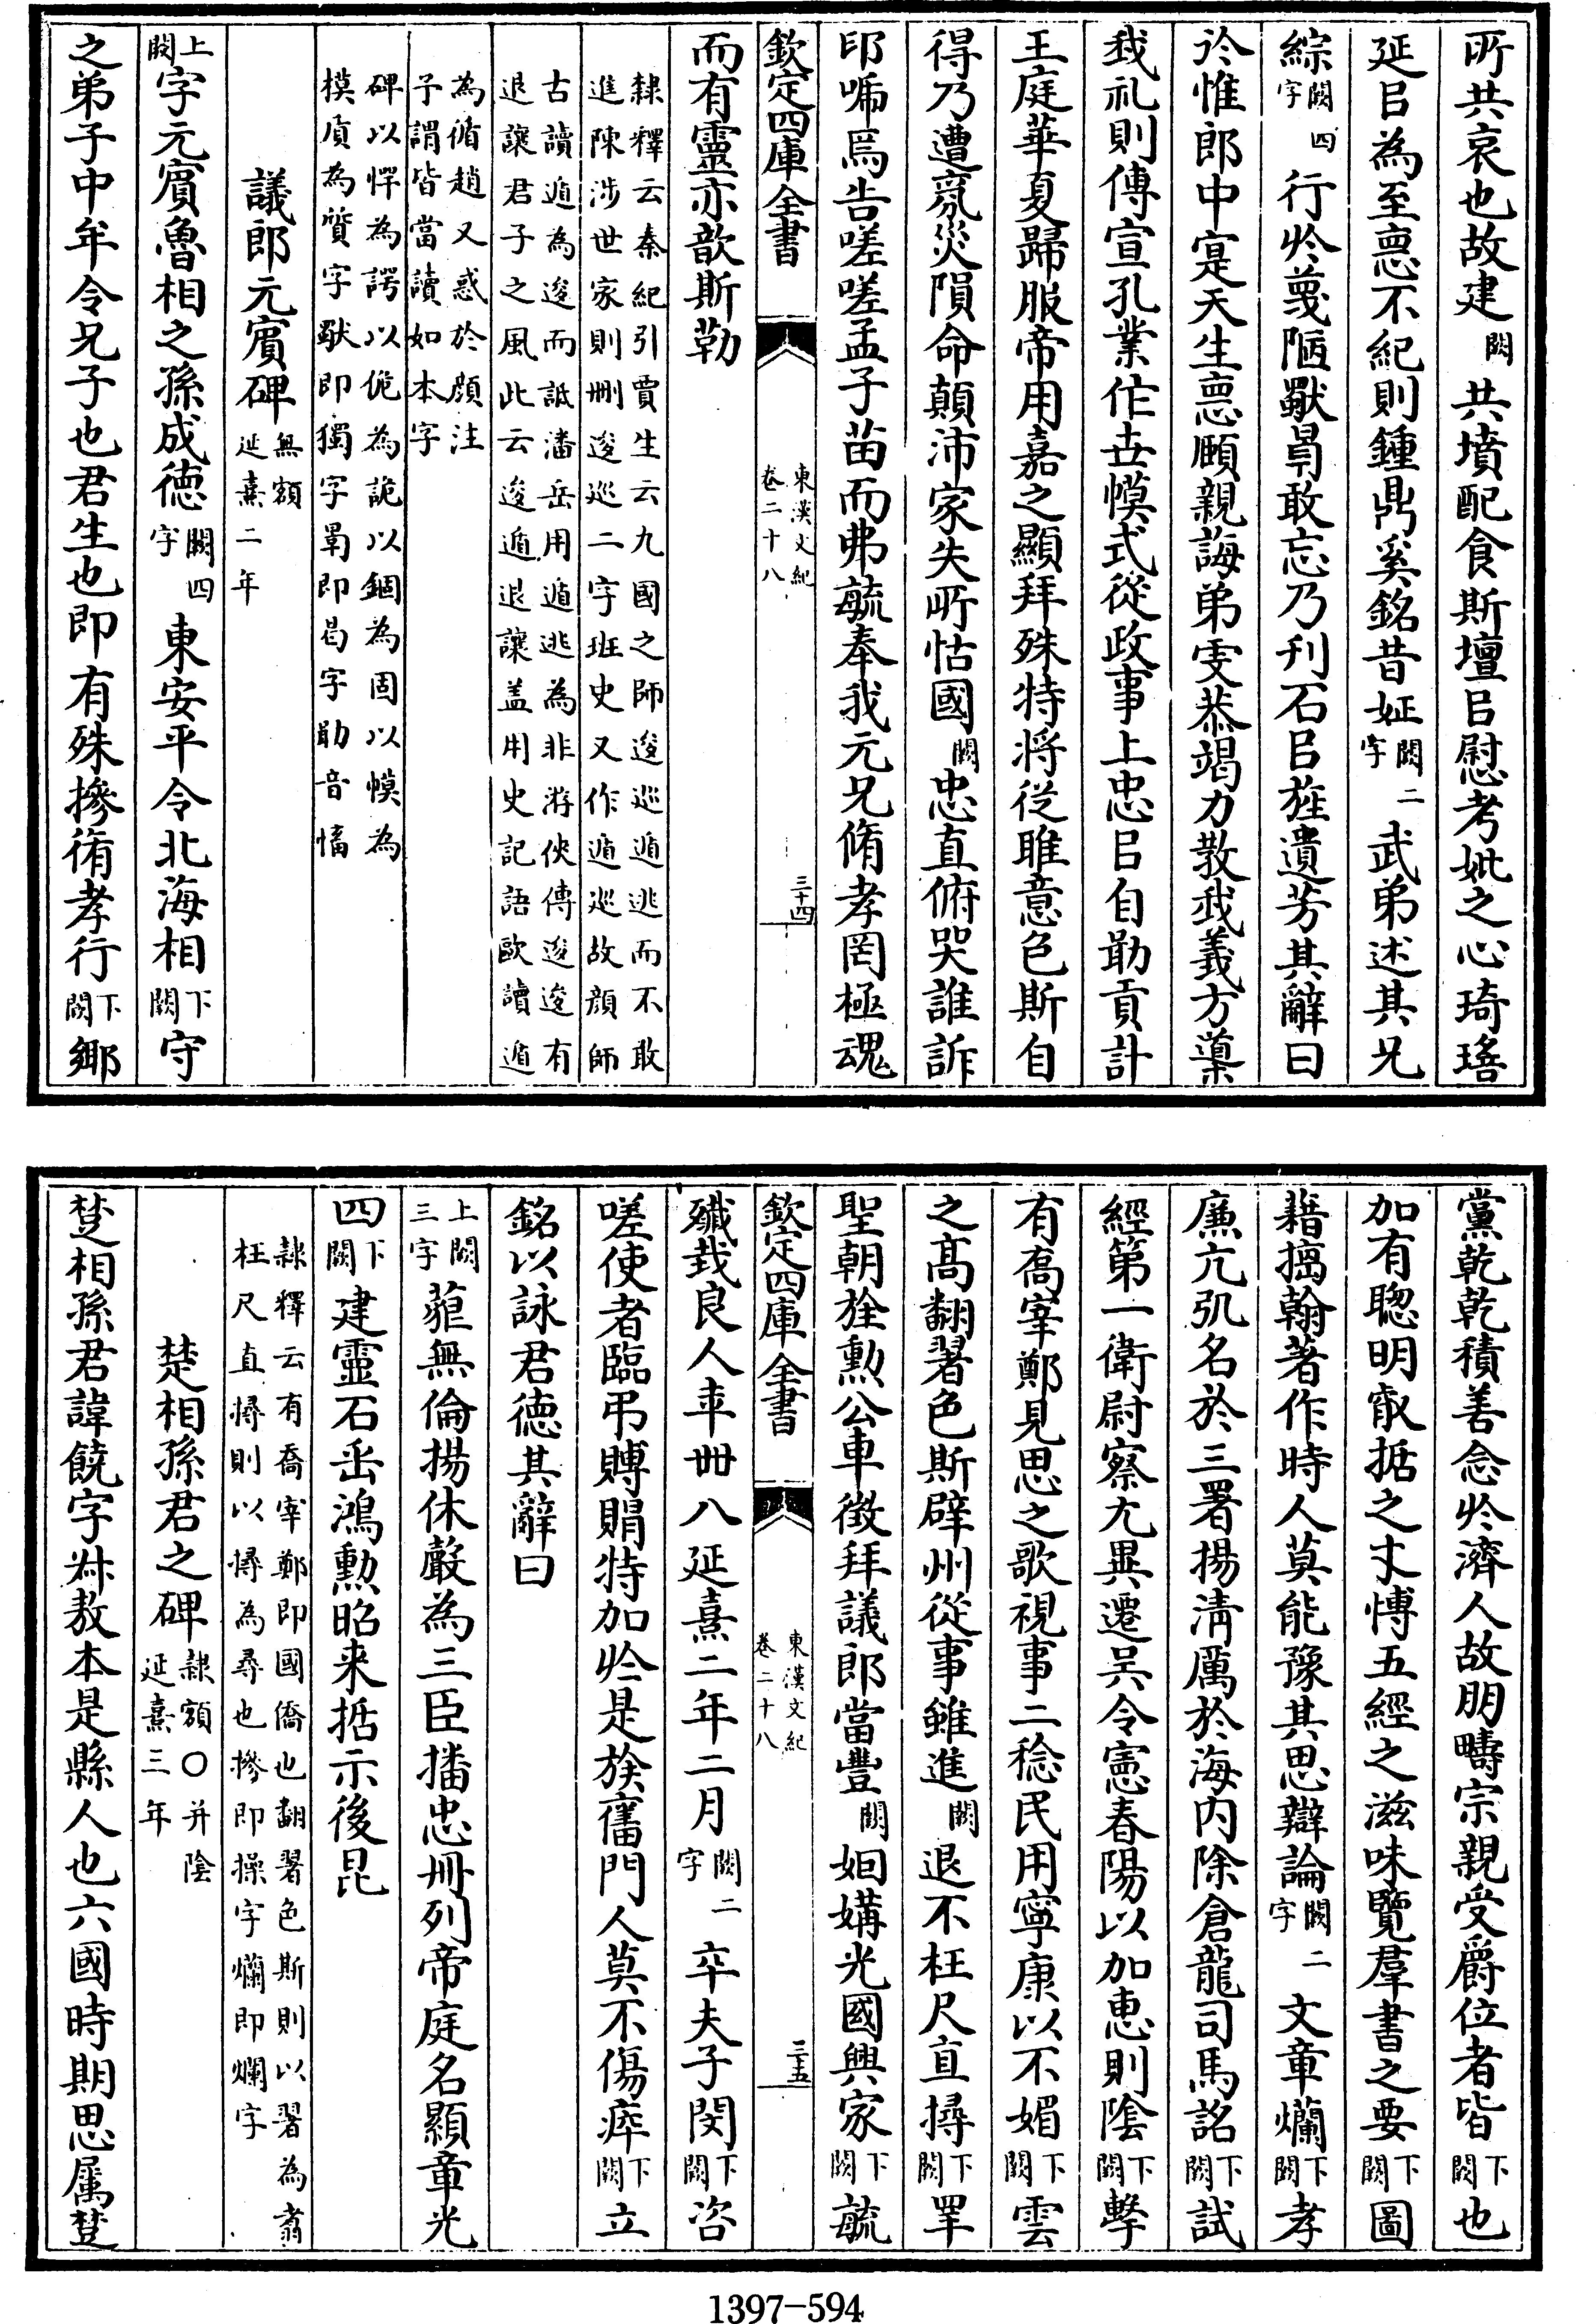 所共哀也故建闕共墳配食斯壇㠯慰考妣之心琦瑤
延㠯為至悳不紀則鍾鼎奚銘昔姃闕二字武弟述其兄
綜闕四字行於蔑陋猷曷敢忘乃刊石㠯旌遺芳其辭曰
於惟郎中寔天生悳頋親誨弟雯恭竭力教我義方藁
我礼則傳宣孔業作世㡌式從政事上忠㠯自勛貢計
王庭華夏歸服帝用嘉之顯拜殊特將從雎意色斯自
得乃遭氛災隕命顛沛家失所怙國闕忠直俯哭誰訴
卬嘑焉告嗟嗟孟子苗而弗毓奉我元兄脩孝罔極魂
欽定四庫全書
東漢文紀
卷二十八
三十四
而有靈亦歆斯勒
隸釋云秦紀引賈生云九國之師逡巡遁逃而不敢
進陳涉世家則刪逡巡二字班史又作遁巡故顏師
古讀遁為逡而詆潘岳用遁逃為非游俠傳逡逡有
退讓君子之風此云逡遁退讓盖用史記語歐讀遁
為循趙又惑於顔注
予謂皆當讀如本字
碑以愕為諤以佹為詭以錮為固以㡌為
模㡳為質字猷即獨字曷即曷字勛音愊
議郎元賓碑無額延熹二年
上闕字元賓魯相之孫成徳闕四字東安平令北海相下闕守
之弟子中牟令兄子也君生也即有殊摻脩孝行下闕鄉
黨乾乾積善念於濟人故朋疇宗親受爵位者皆下闕也
加有聰明叡括之才愽五經之滋味覽羣書之要下闕圖
藉摛翰著作時人莫能豫其思辯論闕二字文章爛下闕孝
廉亢氿名於三署揚清厲於海内除倉龍司馬詺下闕試
經第一衛尉察尤異遷吴令憲春陽以加惠則陰下闕擊
有喬宰鄭見思之歌視事二稔民用寧康以不媚下闕雲
之高翻翯色斯辟州從事雖進闕退不枉尺直撏下闕罕
聖朝旌勲公車徴拜議郎當豐闕㛚媾光國興家下闕毓
欽定四庫全書
東漢文紀
卷二十八
三十五
殱㦲良人年卌八延熹二年二月闕二字卒夫子閔下闕咨
嗟使者臨弔賻賵特加於是族舊門人莫不傷瘁下闕立
銘以詠君徳其辭曰
上闕三字蕥無倫揚休嚴為三臣播忠冊列帝庭名顯章光
四下闕建靈石垂鴻勲昭来括示後昆
隸釋云有喬宰鄭即國僑也翻翯色斯則以翯為翥
枉尺直撏則以撏為尋也摻即操字爛即爛字
楚相孫君之碑隸額○并陰延熹三年
楚相孫君諱饒字叔敖本是縣人也六國時期思属楚
1397-594